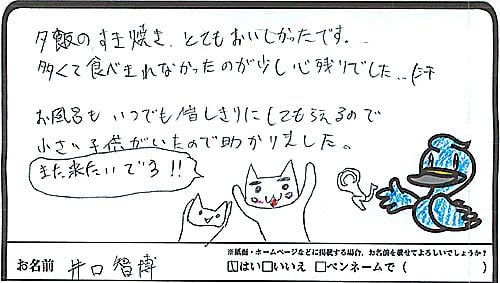 夕飯のすき焼き、とてもおいしかったです。
多くて食べきれなかったのが少し心残りでした‥(汗
お風呂も いつでも貸しきりにしてもらえるので
小さい子供がいたので助かりました。
また来たいでる!!
※紙面・ホームページなどに掲載する場合、お名前を載せてよろしいでしょうか?
お名前 井口 智博 はい いいえ ペンネームで( )